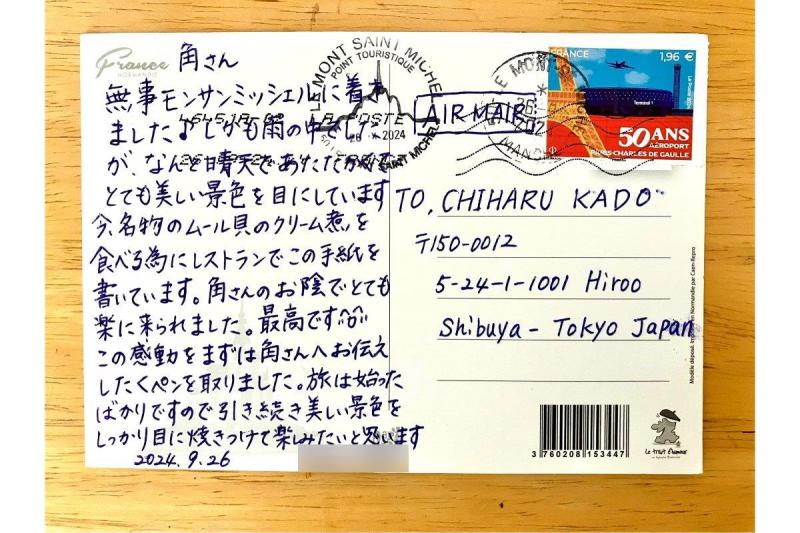 France
NORMANDIE
角さん
無事モンサンミッシェルに着き
ましたましかも雨の中でした
が、なんと晴天であたたかくて
とても美しい景色を目にしています
今、名物のムール貝のクリーム煮を
食べる為にレストランでこの手紙を
書いています。角さんのお陰でとても
楽に来られました。最高です
この感動をまずは角さんへお伝え
したくペンを取りました。旅は始った
ばかりですので引き続き美しい景色を
しっかり目に焼きつけて楽しみたいと思います
2024.9.26
LE MONT SAINT MICHEL
POINT TOURISTIQUE
LA POSTE
2024
SAINT MICHEL
AIR MAIL
FRANCE
1,96 €
La Poste
Terminal 1
50 ANS
AÉROPORT
PARIS-CHARLES DE GAULLE
TO, CHIHARU KADO
〒150-0012
5-24-1-1001 Hiroo
Shibuya - Tokyo Japan
3 760208 153447